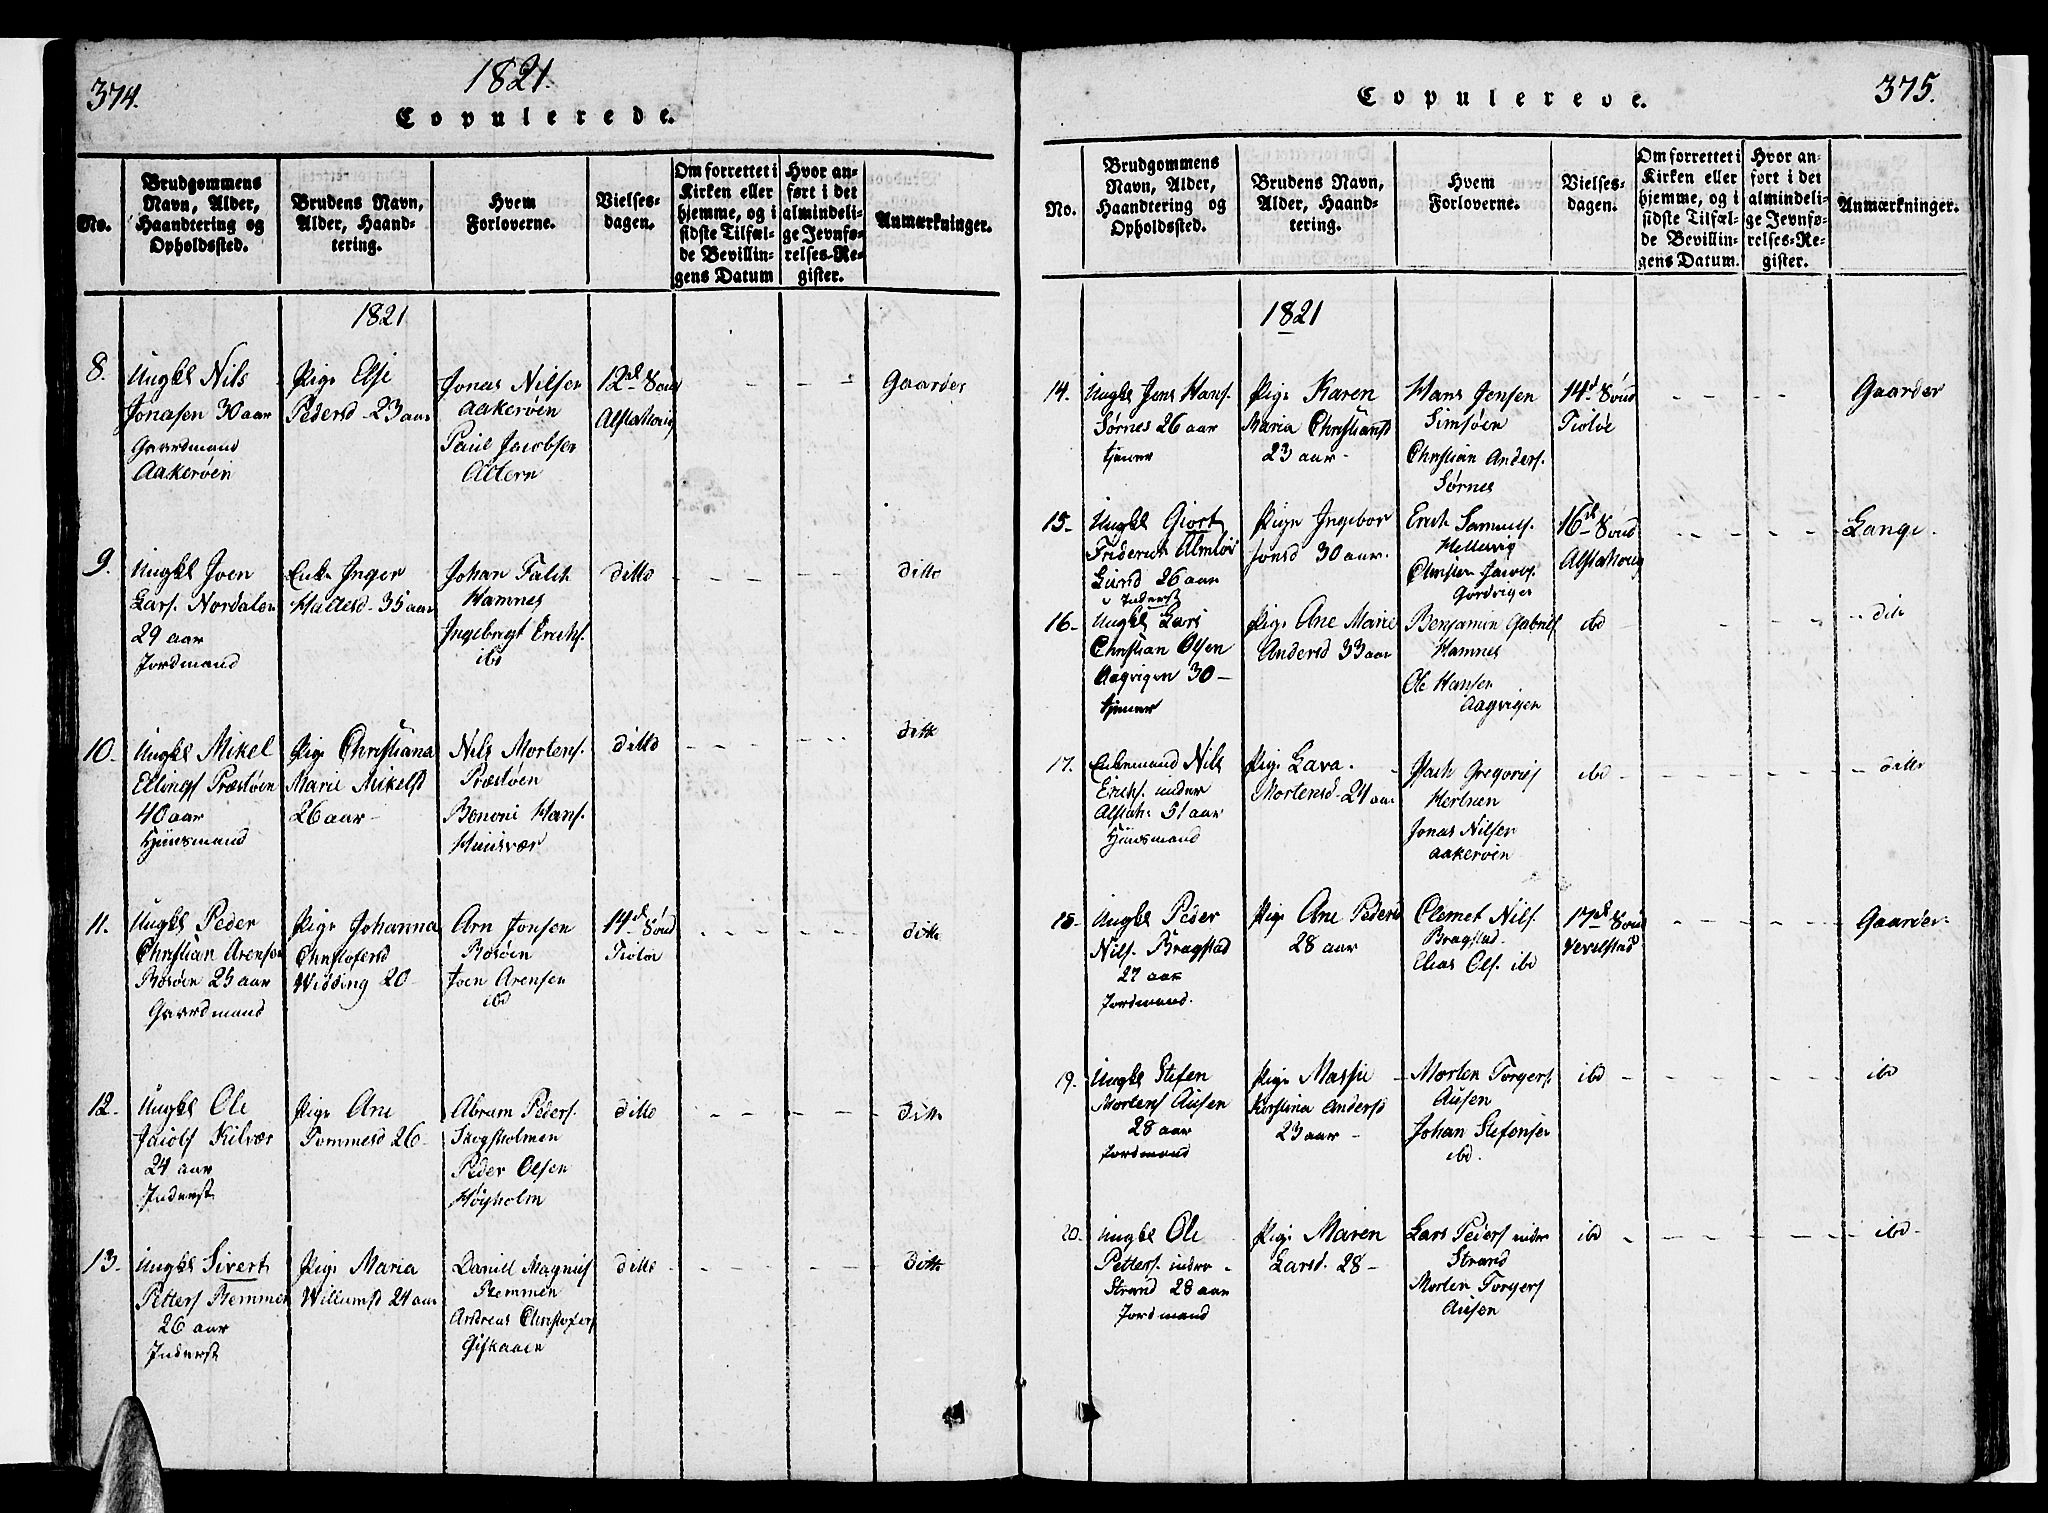 374.
1821.
Copulerede.
No.
Brudgommens Navn, Alder, Haandtering og Opholdssted.
Brudens Navn, Alder, Haandtering.
Hvem Forloverne.
Vielsesdagen.
Om forrettet i Kirken eller hjemme, og i sidste Tilfælde Bevillingens Datum
Hvor anført i det almindelige Jevnførelses-Register.
Anmærkninger.
1821
8.
Ungkl Nils
Jonasen 30 aar
Gaardmand
Aakerøen
Pige Else
Pedersd 23 aar
Jonas Nilsen
Aakerøen
Paul Jacobsen
Altern
12te Sønd
Alstahoug
Gaarder
9.
Ungkl Iven
Lars. Nordalen
29 aar
Jordmand
Enke Inger
Hallesd 35 aar
Johan Falch
Hamnes
Ingebrigt Erichs.
ibd
ditto
ditto
10.
Ungkl Mikel
Ellings Præstøen
40 aar
Huusmand
Pige Christiana
Marie Mikelsd
26 aar
Nils Mortens.
Præstøen
Benoni Hans.
Huusvær
ditto
ditto
11.
Ungkl Peder
Christian Arensen
Rosøen 25 aar
Gaardmand
Pige Johanna
Christofersd
Widding 20
Arn Jonsen
Rosøen
Iven Arensen
ibd
14de Sønd
Tiøtøe
ditto
12.
Ungkl Ole
Jacobs Kilvær
24 aar
Inderst
Pige Ane
Tommesd 26
Abram Peders.
Skogsholmen
Peder Olsen
Høyholm
ditto
ditto
13.
Ungkl Sivert
Petters Remmen
26 aar
Inderst
Pige Maria
Willumsd 24 aar
Daniel Magnus
Remmen
Andreas Christofers
Gifkaaen
ditto
ditto
Copulerede.
375.
No.
Brudgommens Navn, Alder, Haandtering og Opholdssted.
Brudens Navn, Alder, Haandtering.
Hvem Forloverne.
Vielsesdagen.
Om forrettet i Kirken eller hjemme, og i sidste Tilfælde Bevillingens Datum.
Hvor anført i det almindelige Jevnførelses-Register.
Anmærkninger.
1821
14.
Ungkl Jens Hans.
Sørnes 26 aar
tjener
Pige Karen
Maria Christiansd
23 aar
Hans Jensen
Simsøen
Christian Anders.
Sørnes
14d Sønd
Tiøtøe
Gaarder
15.
Ungkl Giert
Friderich Almløv
Lund 26 aar
Inderst
Pige Ingebor
Jonsd 30 aar
Erich Samuels.
Hellesvig
Christen Jacobs.
16de Sønd
Alstahoug
Lange.
16.
Ungkl Lars
Christian Olsen
Aagvigen 30
tjener
Pige Ane Marie
Andersd 33 aar
Benjamin Gabriels
Hamnes
Ole Hansen
Aagvigen
ibd
dito
17.
Enkemand Nils
Erichs. under
Alstah: 51 aar
Huusmand
Pige Lava
Mortensd 24 aar
Isach Gregorius
Hertnen
Jonas Nilsen
Aakerøen
ibd
ditto
18.
Ungkl Peder
Nils. Bragstad
27 aar
Jordmand.
Pige Ane Pedersd
28 aar
Clemet Nils.
Bragstad.
Elias Ols. ibd
17de Sønd
Vevelstad
Gaarder
19.
Ungkl Stefen
Mortens Ausen
28 aar
Jordmand
Pige Massie
Karstina Andersd
23 aar
Morten Torgers.
Ausen
Johan Stefensen
ibd.
ibd
ibd
20.
Ungkl Ole
Petters. indre
Strand 28 aar
Jordmand
Pige Maren
Larsd. 28
Lars Peders indre
Strand
Morten Torgers
Ausen
ibd
ibd